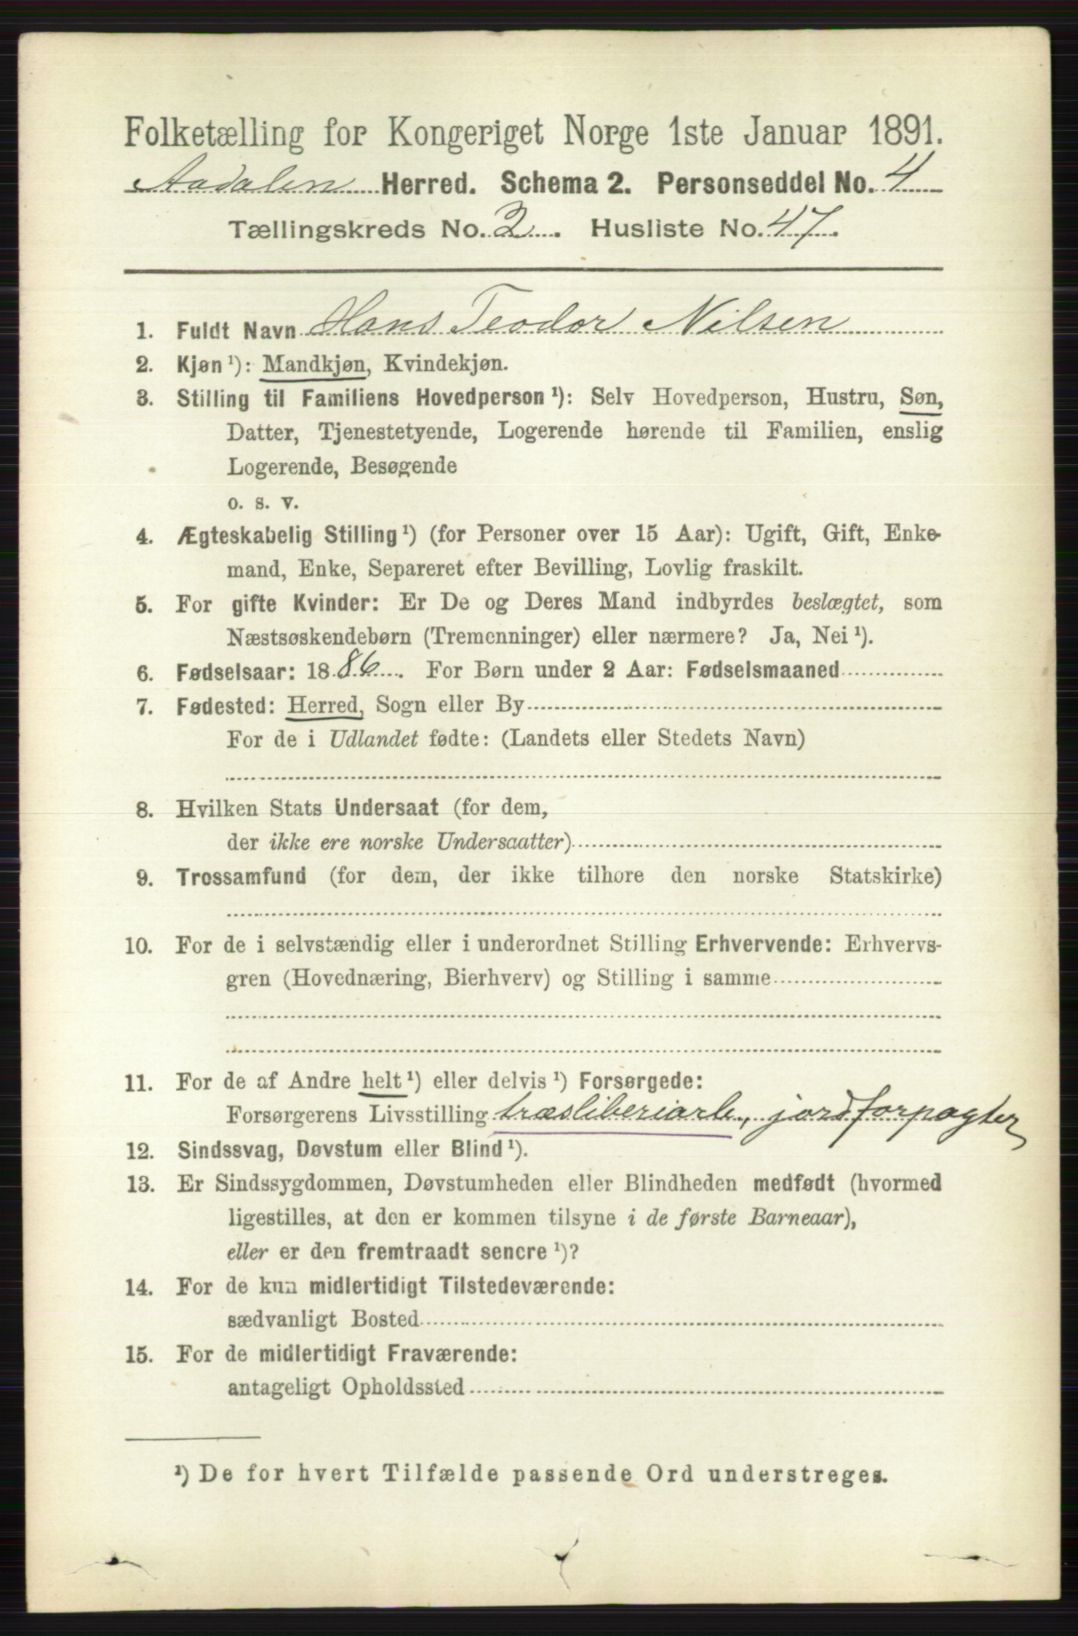 Folketælling for Kongeriget Norge 1ste Januar 1891.
Aadalen Herred. Schema 2. Personseddel No. 4
Tællingskreds No. 2. Husliste No. 47.
1. Fuldt Navn Hans Teodor Nilsen
2. Kjøn ¹): Mandkjøn, Kvindekjøn.
3. Stilling til Familiens Hovedperson ¹): Selv Hovedperson, Hustru, Søn,
Datter, Tjenestetyende, Logerende hørende til Familien, enslig
Logerende, Besøgende
o. s. v.
4. Ægteskabelig Stilling ¹) (for Personer over 15 Aar): Ugift, Gift, Enke-
mand, Enke, Separeret efter Bevilling, Lovlig fraskilt.
5. For gifte Kvinder: Er De og Deres Mand indbyrdes beslægtet, som
Næstsøskendebørn (Tremenninger) eller nærmere? Ja, Nei ¹).
6. Fødselsaar: 1886. For Børn under 2 Aar: Fødselsmaaned
7. Fødested: Herred, Sogn eller By
For de i Udlandet fødte: (Landets eller Stedets Navn)
8. Hvilken Stats Undersaat (for dem,
der ikke ere norske Undersaatter)
9. Trossamfund (for dem, der ikke tilhore den norske Statskirke)
10. For de i selvstændig eller i underordnet Stilling Erhvervende: Erhvervs-
gren (Hovednæring, Bierhverv) og Stilling i samme
11. For de af Andre helt ¹) eller delvis ¹) Forsørgede:
Forsørgerens Livsstilling træsliberiarb., jordforpagter
12. Sindssvag, Døvstum eller Blind ¹).
13. Er Sindssygdommen, Døvstumheden eller Blindheden medfødt (hvormed
ligestilles, at den er kommen tilsyne i de første Barneaar),
eller er den fremtraadt senere ¹)?
14. For de kun midlertidigt Tilstedeværende:
sædvanligt Bosted
15. For de midlertidigt Fraværende:
antageligt Opholdssted
¹) De for hvert Tilfælde passende Ord understreges.